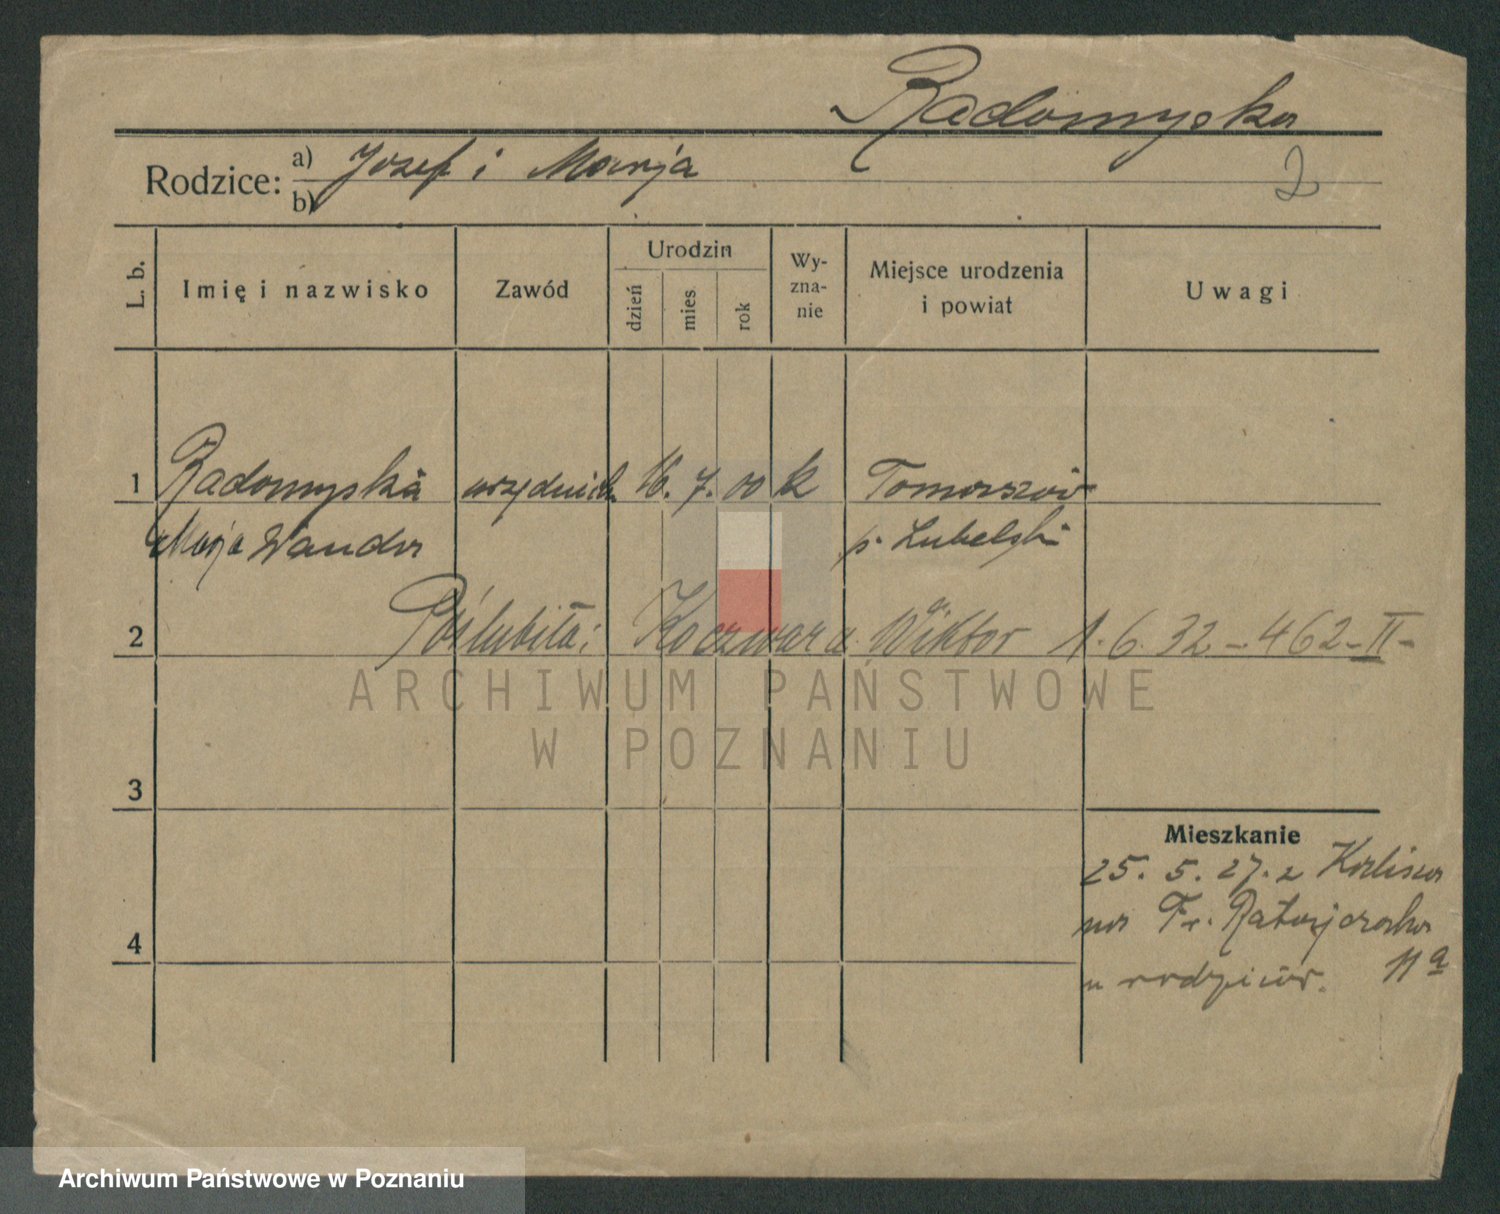 Radomyska
2
Rodzice: a) Józef i Marja
b)
L. b. Imię i nazwisko Zawód Urodzin dzień mies rok Wy-zna-nie Miejsce urodzenia i powiat Uwagi
1 Radomyska urzędnicz. 16. 7. 00 k Tomaszów
Marja Wanda p. Lubelski
2 Poślubiła: Koczwara Wiktor 1. 6. 32 – 462 – II –
ARCHIWUM PAŃSTWOWE
W POZNANIU
3
Mieszkanie
25. 5. 27. z Kalisza
na Fr. Ratajczaka
4
11a
u rodziców.
Archiwum Państwowe w Poznaniu